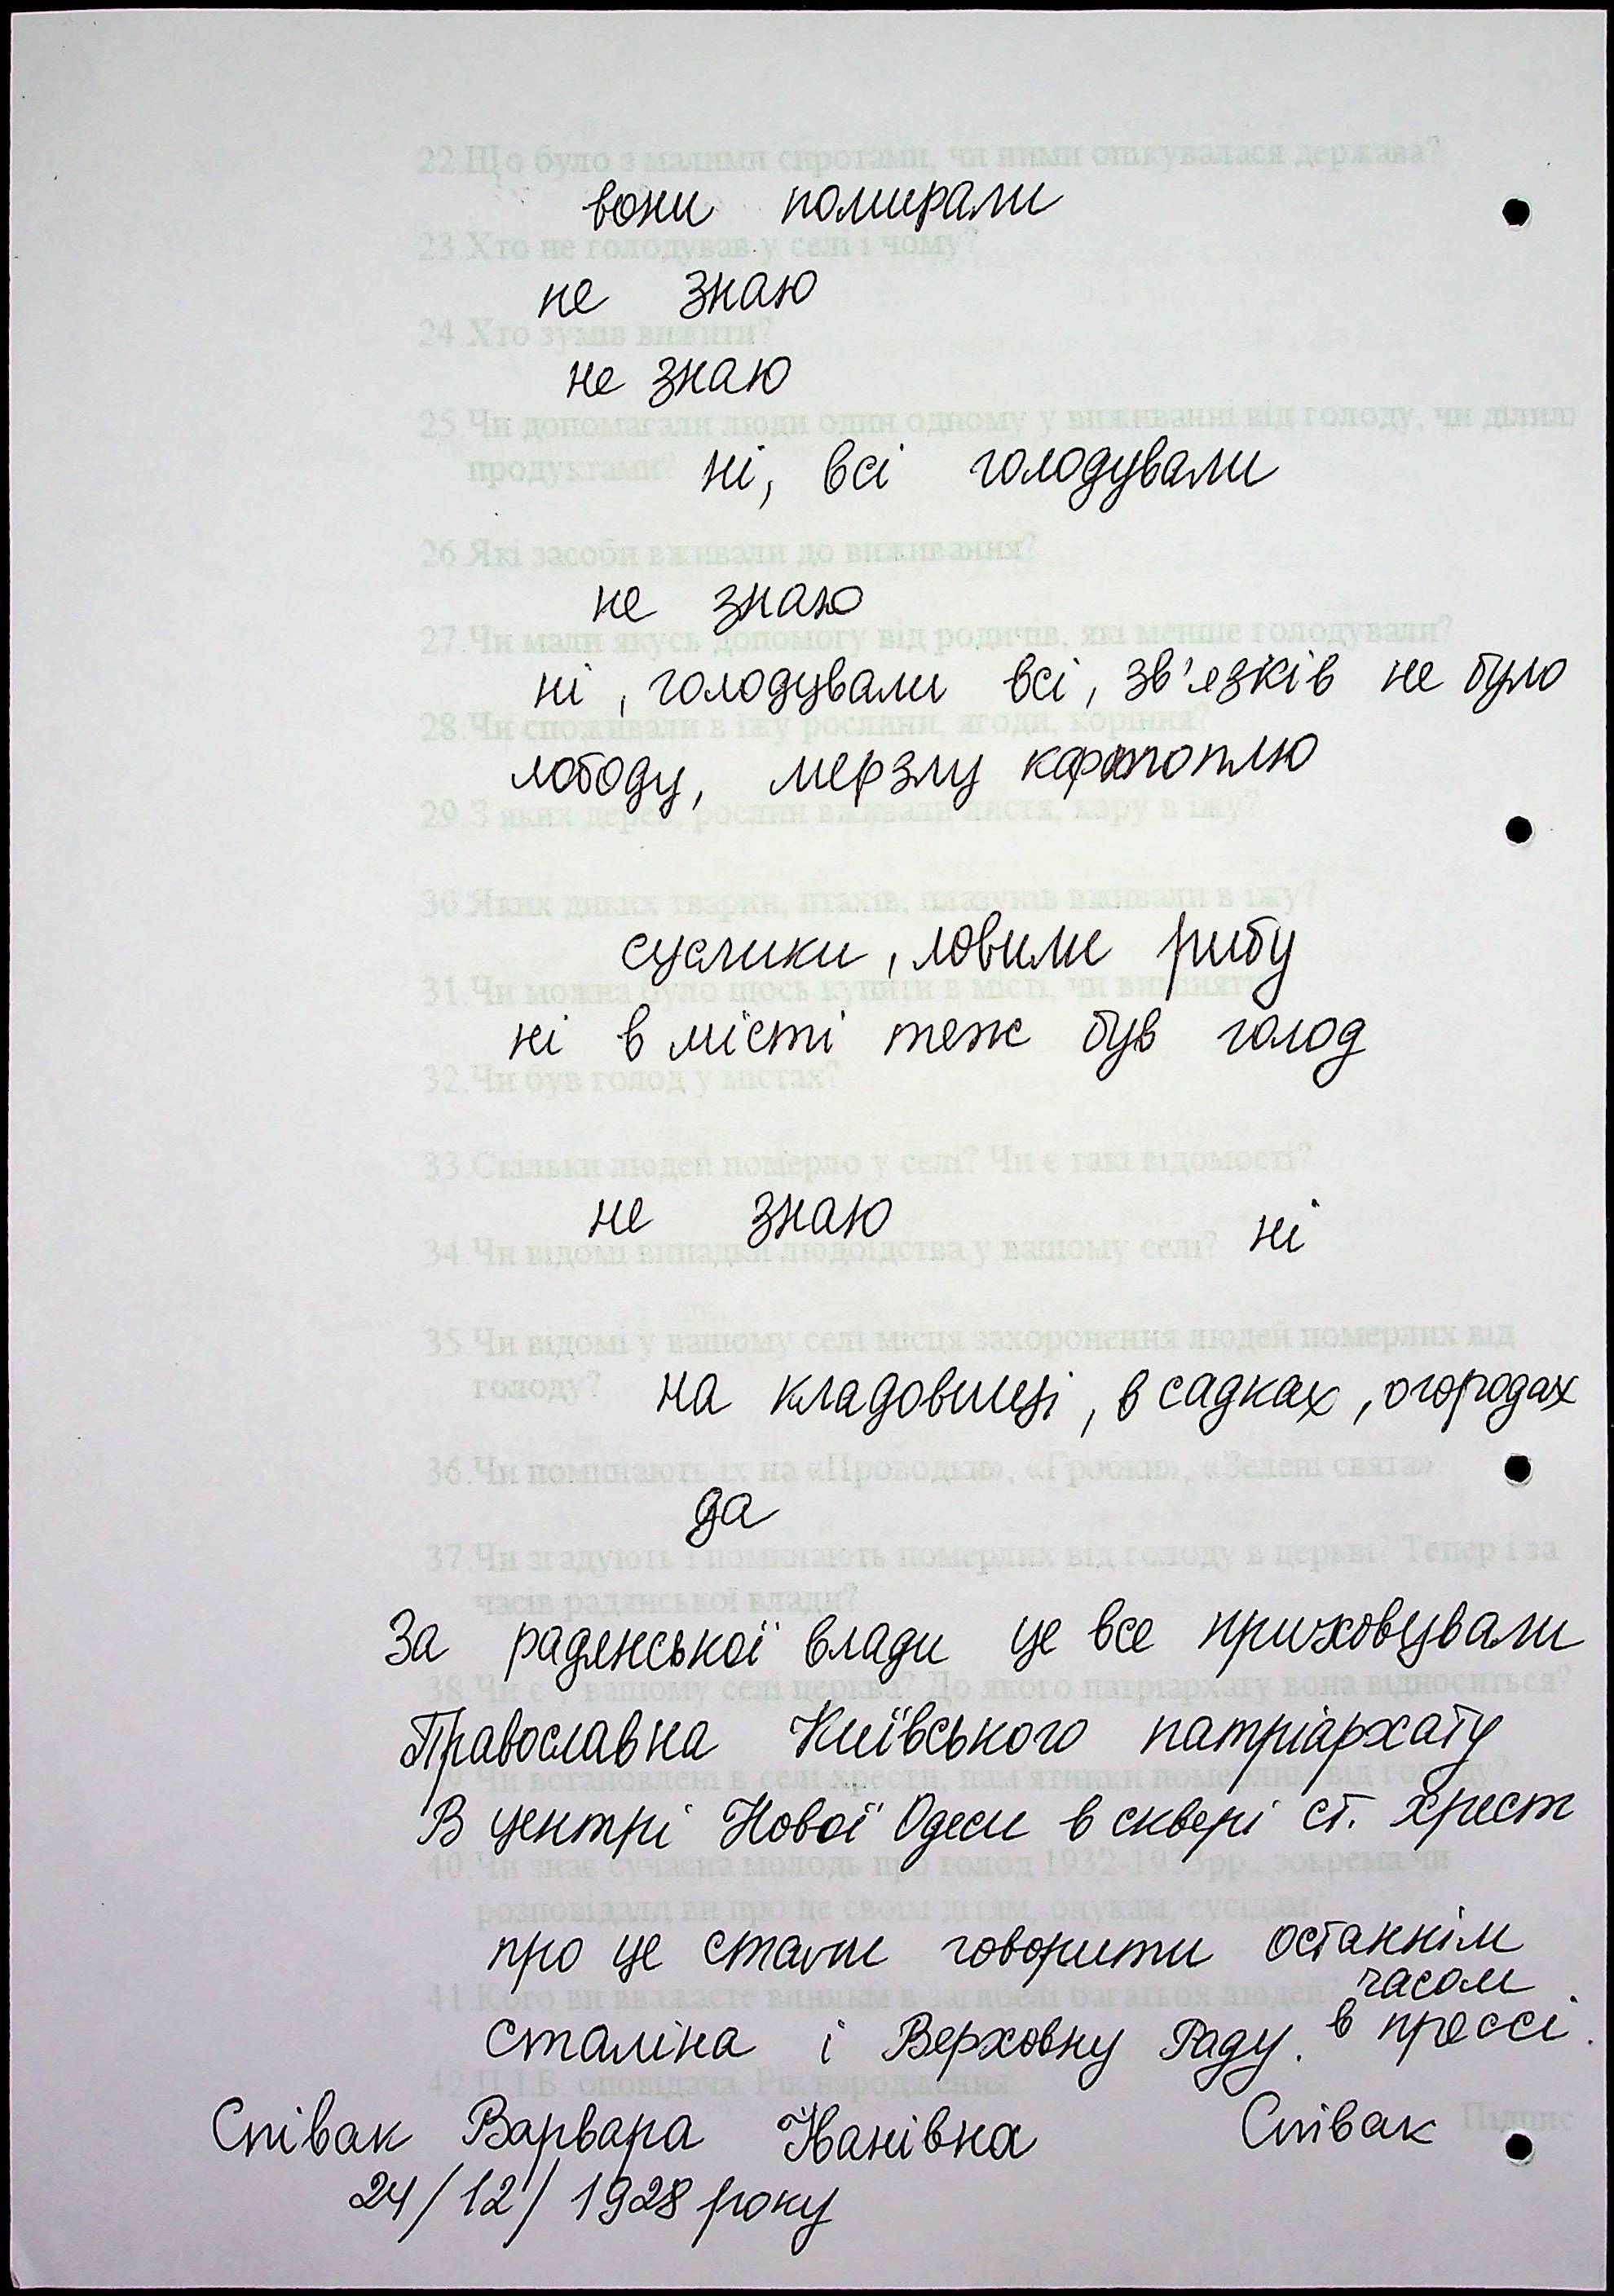 22.Що було з малими сиротами, чи ними опікувалася держава?
вони помирали
23.Хто не голодував у селі і чому?
не знаю
24.Хто зумів вижити?
не знаю
25.Чи допомагали люди один одному у виживанні від голоду, чи ділились
продуктами? ні, всі голодували
26.Які засоби вживали до виживання?
не знаю
27.Чи мали якусь допомогу від родичів, які менше голодували?
ні, голодували всі, зв'язків не було
28.Чи споживали в їжу рослини, ягоди, коріння?
лободу, мерзлу картоплю
29.З яких дерев, рослин вживали листя, кору в їжу?
30.Яких диких тварин, птахів, плазунів вживали в їжу?
суслики, ловили рибу
31.Чи можна було щось купити в місті, чи виміняти
ні в місті теж був голод
32.Чи був голод у містах?
33.Стільки людей померло у селі? Чи є такі відомості?
не знаю
34.Чи відомі випадки людоїдства у вашому селі? ні
35.Чи відомі у вашому селі місця захоронення людей померлих від
голоду? на кладовищі, в садках, огородах
36.Чи поминають їх на «Проводи», «Гробки», «Зелені свята»
да
37.Чи згадують і поминають померлих від голоду в церкві? Тепер і за
часів радянської влади?
За радянської влади це все приховували
38.Чи є у вашому селі церква? До якого патріархату вона відноситься?
Православна Київського патріархату
39.Чи встановлені в селі хрести, пам'ятники померлим від голоду?
В центрі Нової Одеси в сквері ст. хрест
40.Чи знає сучасна молодь про голод 1932-1933рр., зокрема чи
розповідали ви про це своїм дітям, онукам, сусідам?
про це стали говорити останнім
часом
41.Кого ви вважаєте винним в загибелі багатьох людей?
в прессі.
Сталіна і Верховну Раду.
42.П.І.Б. оповідача. Рік народження
Підпис
Співак Варвара Іванівна Співак
24/12/1928 року